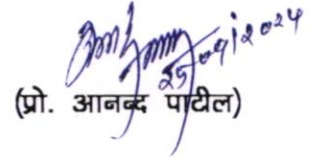 25/09/2024
(प्रो. आनन्द पाटील)